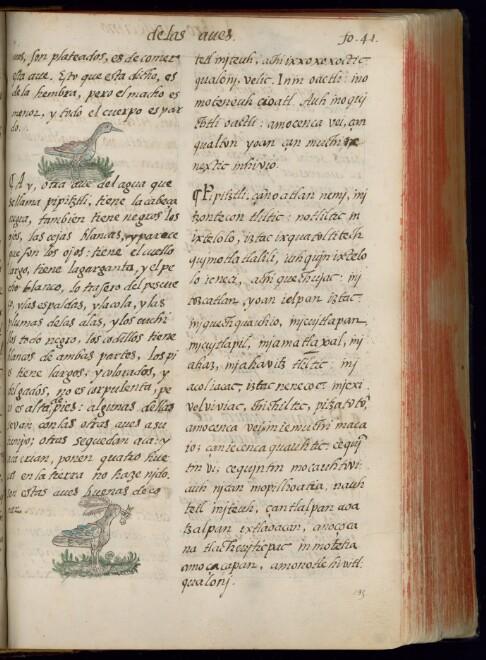 de las aues.
fo. 41.
son plateados, es de comer
esta aue. Esto que esta dicho, es
de la hembra, pero el macho es
menor, y todo el cuerpo es par
do.
¶ Ay, otra aue del agua que
se llama pipitztli, tiene la cabeça
negra, tambien tiene negros los
ojos, las cejas blancas, y parece
que son los ojos: tiene el cuello
largo, tiene la garganta, y el pe
cho blanco, lo trasero del pescue
ço, y las espaldas, y la cola, y las
plumas de las alas, y los cuchi
llos todo negro, los codillos tiene
blancos de ambas partes, los pi
es tiene largos: y colorados, y
delgados, no es corpulenta, pe
ro es alta de pies: algunas dellas
se van, con las otras aues a su
tiempo; otras se quedan aca: y
na crian, ponen quatro hue
uos en la tierra no haze nido.
Son estas aues buenas de co
mer.
tetl injteuh, achi ixxoxoxoctic
qualonj, velic. Inin oactli: in o
moteneuh cioatl. Auh in oqui
chtli oactli: amo cenca vei, çan
qualton yoan çan much
nextic inihvio.
¶ Pipitztli, çan no atlan nemj, in
tzontecon tliltic: no tliltic in
ixtelolo, iztac ixquatoltitech
qujmotlatlalili, iuhqujn ixtelo
lo ieneci, achi quechujac: in
tozcatlan, yoan ielpan iztac:
injquechquauhio, injcujtlapan,
injcujtlapil, injamatlapal, in
ahaz, injahavitz tliltic: in
acoliaac, iztac nenecoc: injcxi
velviviac, chichiltic, pitzatoto,
amo cenca vei, in iemuchi maca
ic; çan ie cenca quauhtic: cequj
tin vi; cequjntin mocauhtivi:
auh njcan mopilhoatia, nauh
tetl injteuh, çan tlalpan aoa
tzalpan ixtlaoacan, anoçoca
na tlachcujticpac in motetia
amo çacapan, amo no ihivitl:
qualonj.